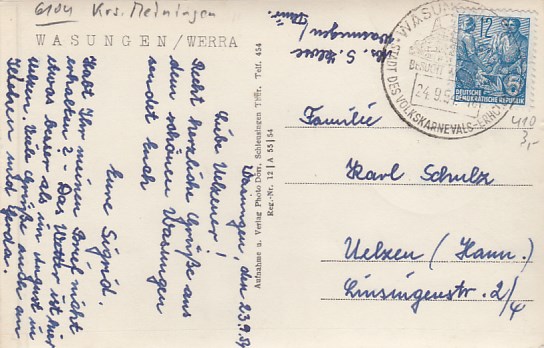 6104 Krs. Meiningen
WASUNGEN/WERRA
Wasungen, den 23.9.54
Liebe Uelzener!
Recht herzliche Grüße aus
dem schönen Wasungen
sendet Euch
Eure Sigrid.
Habt Ihr meinen Brief nicht
erhalten? - Das Wetter ist hier
etwas besser als im August in
Uelzen. Viele Grüße auch an
und Gerda.
Abs. S.
Wasungen/
Thür.
Aufnahme u. Verlag Photo Dörr, Schleusingen Thür. Telf. 454
Reg.-Nr. 12 | A 55 | 54
WASUNG
BESUCHT
24.9.54
STADT DES VOLKSKARNEVALS-ERHO
12
6
DEUTSCHE
DEMOKRATISCHE REPUBLIK
410
3,-
Familie
Karl Schulz
Uelzen (Hann.)
Linsingenstr. 2/4